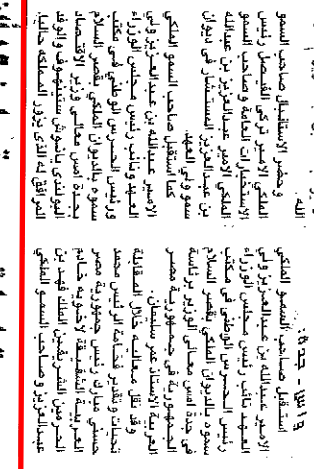 واس - جدة:
استقبل صاحب السمو الملكي
الامير عبدالله بن عبدالعزيز ولي
العهد نائب رئيس مجلس الوزراء
رئيس الحرس الوطني في مكتب
سموه بالديوان الملكي بقصر السلام
في جدة امس معالي الوزير برئاسة
الجمهورية في جمهورية مصر
العربية الاستاذ عمر سليمان.
وقد نقل معاليه خلال المقابلة
تحيات وتقدير فخامة الرئيس محمد
حسني مبارك رئيس جمهورية مصر
العربية الشقيقة لاخويه خادم
الحرمين الشريفين الملك فهد بن
عبدالعزيز وصاحب السمو الملكي
الله.
وحضر الاستقبال صاحب السمو
الملكي الامير تركي الفيصل رئيس
الاستخبارات العامة وصاحب السمو
الملكي الامير عبدالعزيز بن عبدالله
بن عبدالعزيز المستشار في ديوان
سمو ولي العهد.
كما استقبل صاحب السمو الملكي
الامير عبدالله بن عبدالعزيز ولي
العهد ونائب رئيس مجلس الوزراء
ورئيس الحرس الوطني في مكتب
سموه بالديوان الملكي بقصر السلام
بجدة امس معالي وزير الاقتصاد
البولندي يانوش ستينهوف والوفد
المرافق له الذي يزور المملكة حاليا.